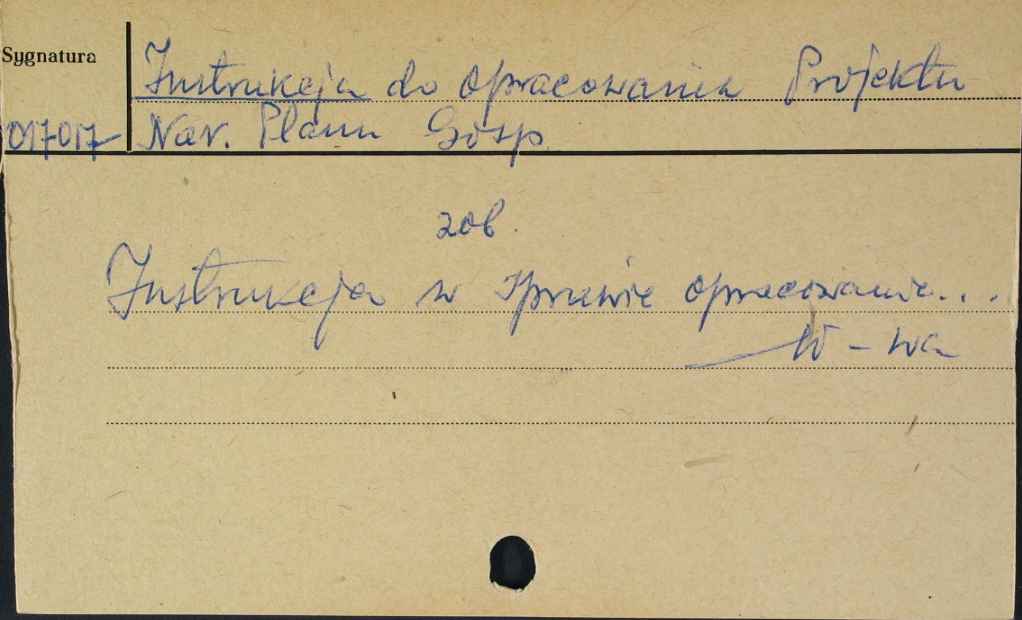 Sygnatura
Instrukcja do opracowania Projektu
017017 Nar. Planu Gosp.
zob.
Instrukcja w sprawie opracowania...
W-wa